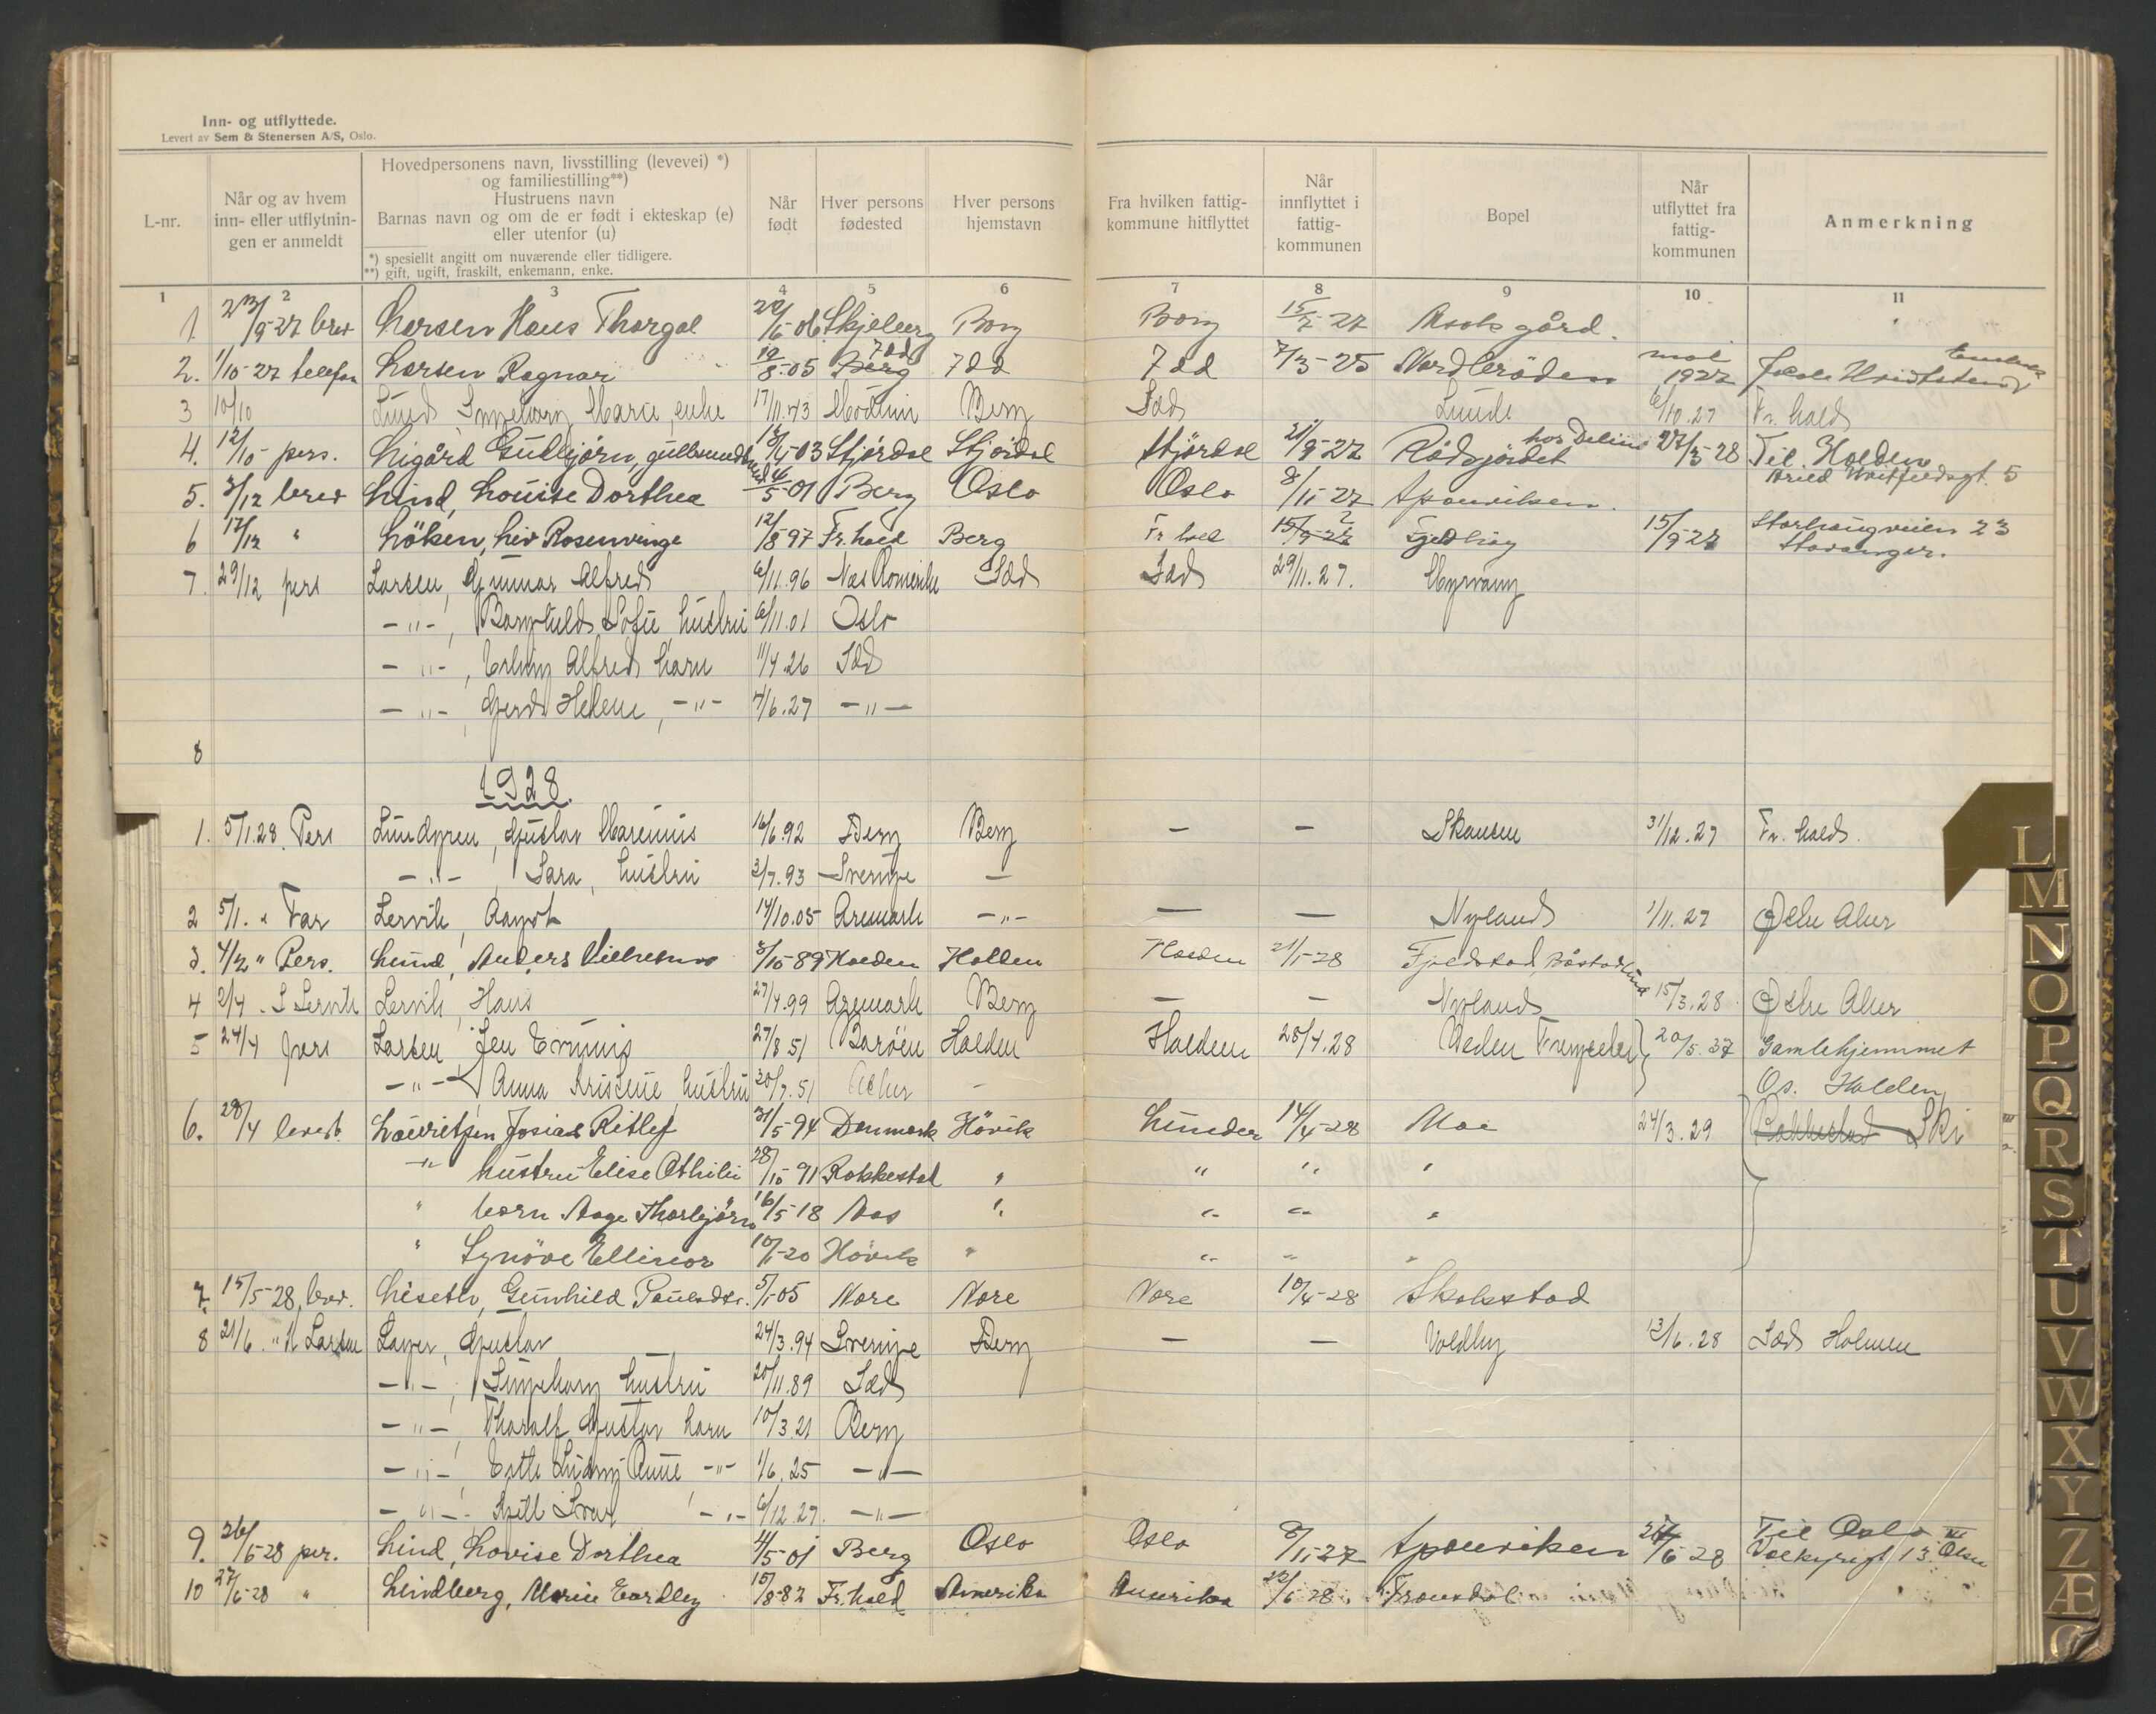 Inn- og utflyttede.
Levert av Sem & Stenersen A/S, Oslo.
L-nr.
Når og av hvem inn- eller utflytnin-gen er anmeldt
Hovedpersonens navn, livsstilling (levevei) *)
og familiestilling**)
Hustruens navn
Barnas navn og om de er født i ekteskap (e)
eller utenfor (u)
*) spesiellt angitt om nuværende eller tidligere.
**) gift, ugift, fraskilt, enkemann, enke.
Når født
Hver persons fødested
Hver persons hjemstavn
Fra hvilken fattig-kommune hitflyttet
Når innflyttet i fattig-kommunen
Bopel
Når utflyttet fra fattig-kommunen
Anmerkning
1 2 3 4 5 6 7 8 9 10 11
1. 23/9-27 brev Larsen Hans Thorgal 22/5-06 Skjeberg Borg Borg 15/7-27 Asak gård.
2. 1/10-27 telefon Larsen Ragnar 19/8-05 Berg Idd Idd Idd 7/3-25 Nordbröden mai 1927
3 10/10 Lund Ingeborg Marie, enke 17/11.43 Berg Idd Lunde 6/10.27 Fr.hald
4. 12/10 pers. Ligård Gulbjörn, Stjördal Stjördal Stjördal 21/9-27 Rödsjordet hos 27/3-28 Til Halden
5. 3/12 brev Lind, Louise Dorthea 4/5-01 Berg Oslo Oslo 8/11-27 Sponviken. 5
6 17/12 " Löken, Liv Rosenvinge 12/8 97 Fr.hald Berg Fr hald 15/9-27 15/9-27 Storhaugveien 23
Stavanger.
7. 29/12 pers Larsen, Gunnar Alfred 6/11.96 Nes Romerike Idd Idd 29/11.27. Myrvang
-"-, Borghild Sofie hustru 6/11.01 Oslo
-"-, Erling Alfred barn 11/4 26 Idd
-"-, Gerd Helene, -"- 7/6.27 -"-
8
1928.
1. 5/1.28. Pers Lundgren, Gustav Marinius 16/6.92 Berg Berg — — Skansen 31/12.27 Fr. hald.
-"-, Sara, hustru 3/7.93 Sverige —
2 5/1. " Far Lervik, August 14/10.05 Aremark -"- — — Nyland 1/11.27 Østre Aker
3. 4/2 " Pers. Lund, Anders Vilhelm 3/10-89 Halden Halden Halden 21/1-28 Fjeldstad,
4 2/4 . S Lervik Lervik, Hans 27/4.99 Aremark Berg — — Nyland 15/3.28. Østre Aker
5 24/4 pers Larsen 27/8 51 Halden Halden 25/4.28 20/5.37 Gamlehjemmet
-"- Anna Kristine hustru 30/7.51 Os. Halden
6. 28/4 Lauritzen Josias Ritlef 31/5-94 Danmark Hövik Lunder 14/4-28 Moe 24/3.29 Rakkestad Ski
-"- hustru Elise Othilie 28/10 91 Rakkestad " " " "
" barn Aage Thorbjörn 16/5-18 Aas " " " "
" Synöve Ellinor 10/1-20 Hövik " " " "
7. 15/5-28 brev. Liseth, Gunhild Paulsdtr. 5/1-05 Nore Nore Nore 10/4-28 Skakstad
8 21/6. " H Larsen Lager, Gustav 24/3.94 Sverige Berg — — Voldby 13/6.28 Idd Holmen
-"-, Ingeborg hustru 20/11.89 Idd
-"-, Tharalf Gustav barn 10/3.21 Berg
-"-, -"- 1/6.25 -"-
-"-, Kjell Ivar -"- 6/12.27. -"-
9. 26/6-28 per. Lind, Lovise Dorthea 4/5-01 Berg Oslo Oslo 8/11-27 Sponviken 25/6 28 Til Oslo
Valkyrigt 13. III Olsen
10 27/6-28 " Lindberg, Marie Eardley 15/8-82 Fr. hald Amerika Amerika 23/6-28. Fransdal
L
M
N
O
P
Q
R
S
T
U
V
W
X
Y
Z
Æ